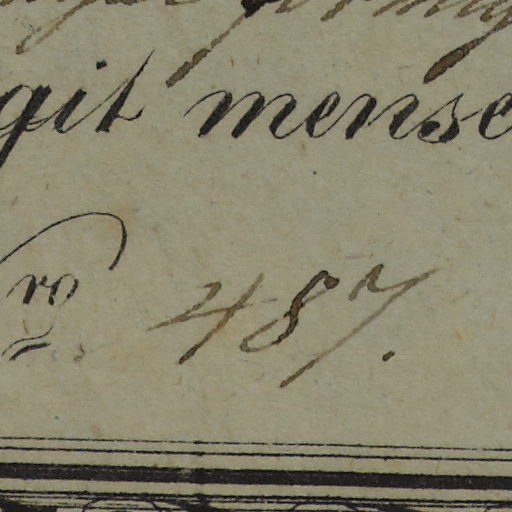 git mense
ro 487.